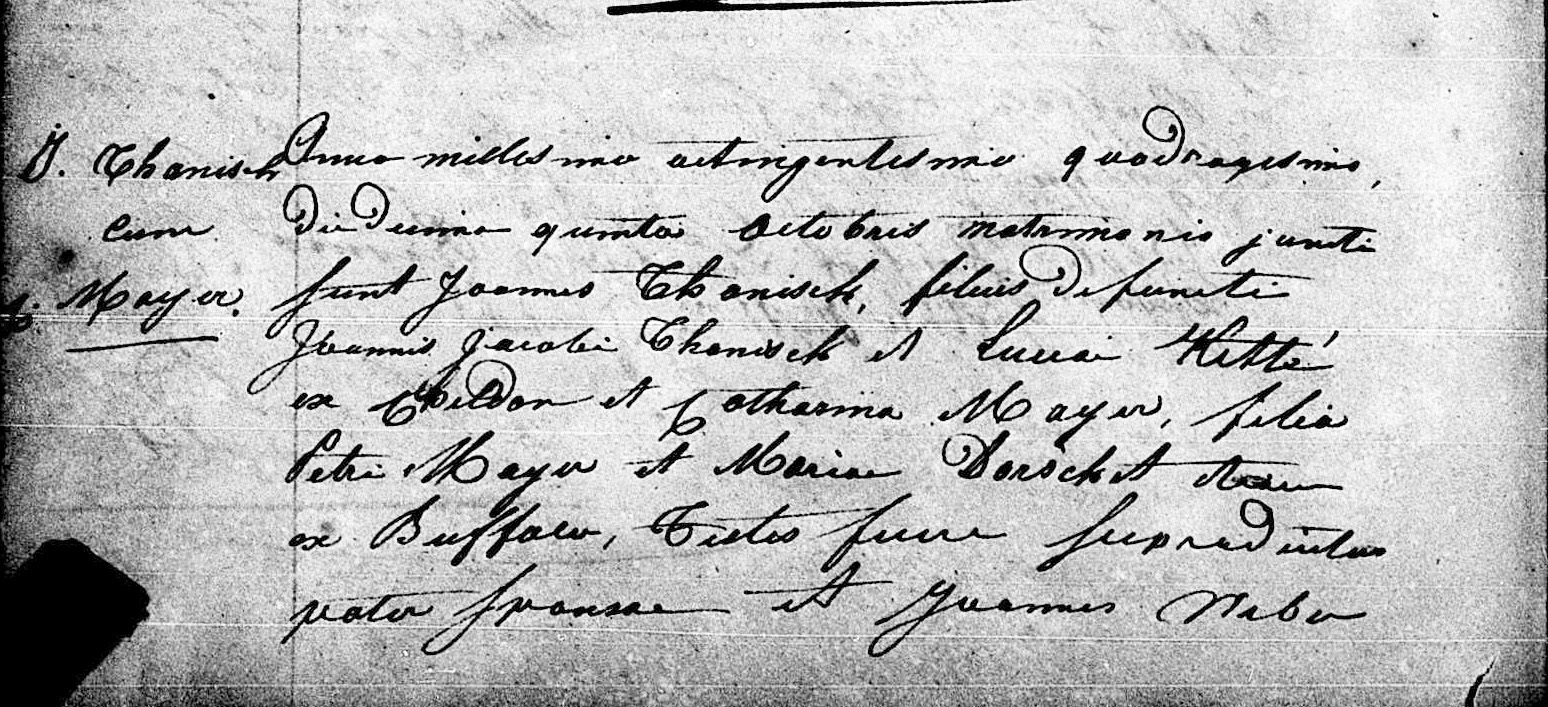 J. Thanisch
cum
C. Mayer.
Anno millesimo octingentesimo quadragesimo,
die decima quinta octobris matrimonio juncti
sunt Joannes Thanisch, filius defuncti
Joannis Jacobi Thanisch et Lucia
ex et Catharina Mayer, filia
Petri Mayer et Mariae
ex Buffalo, Testes fuere supradictus
pater sponsae et Joannes Weber